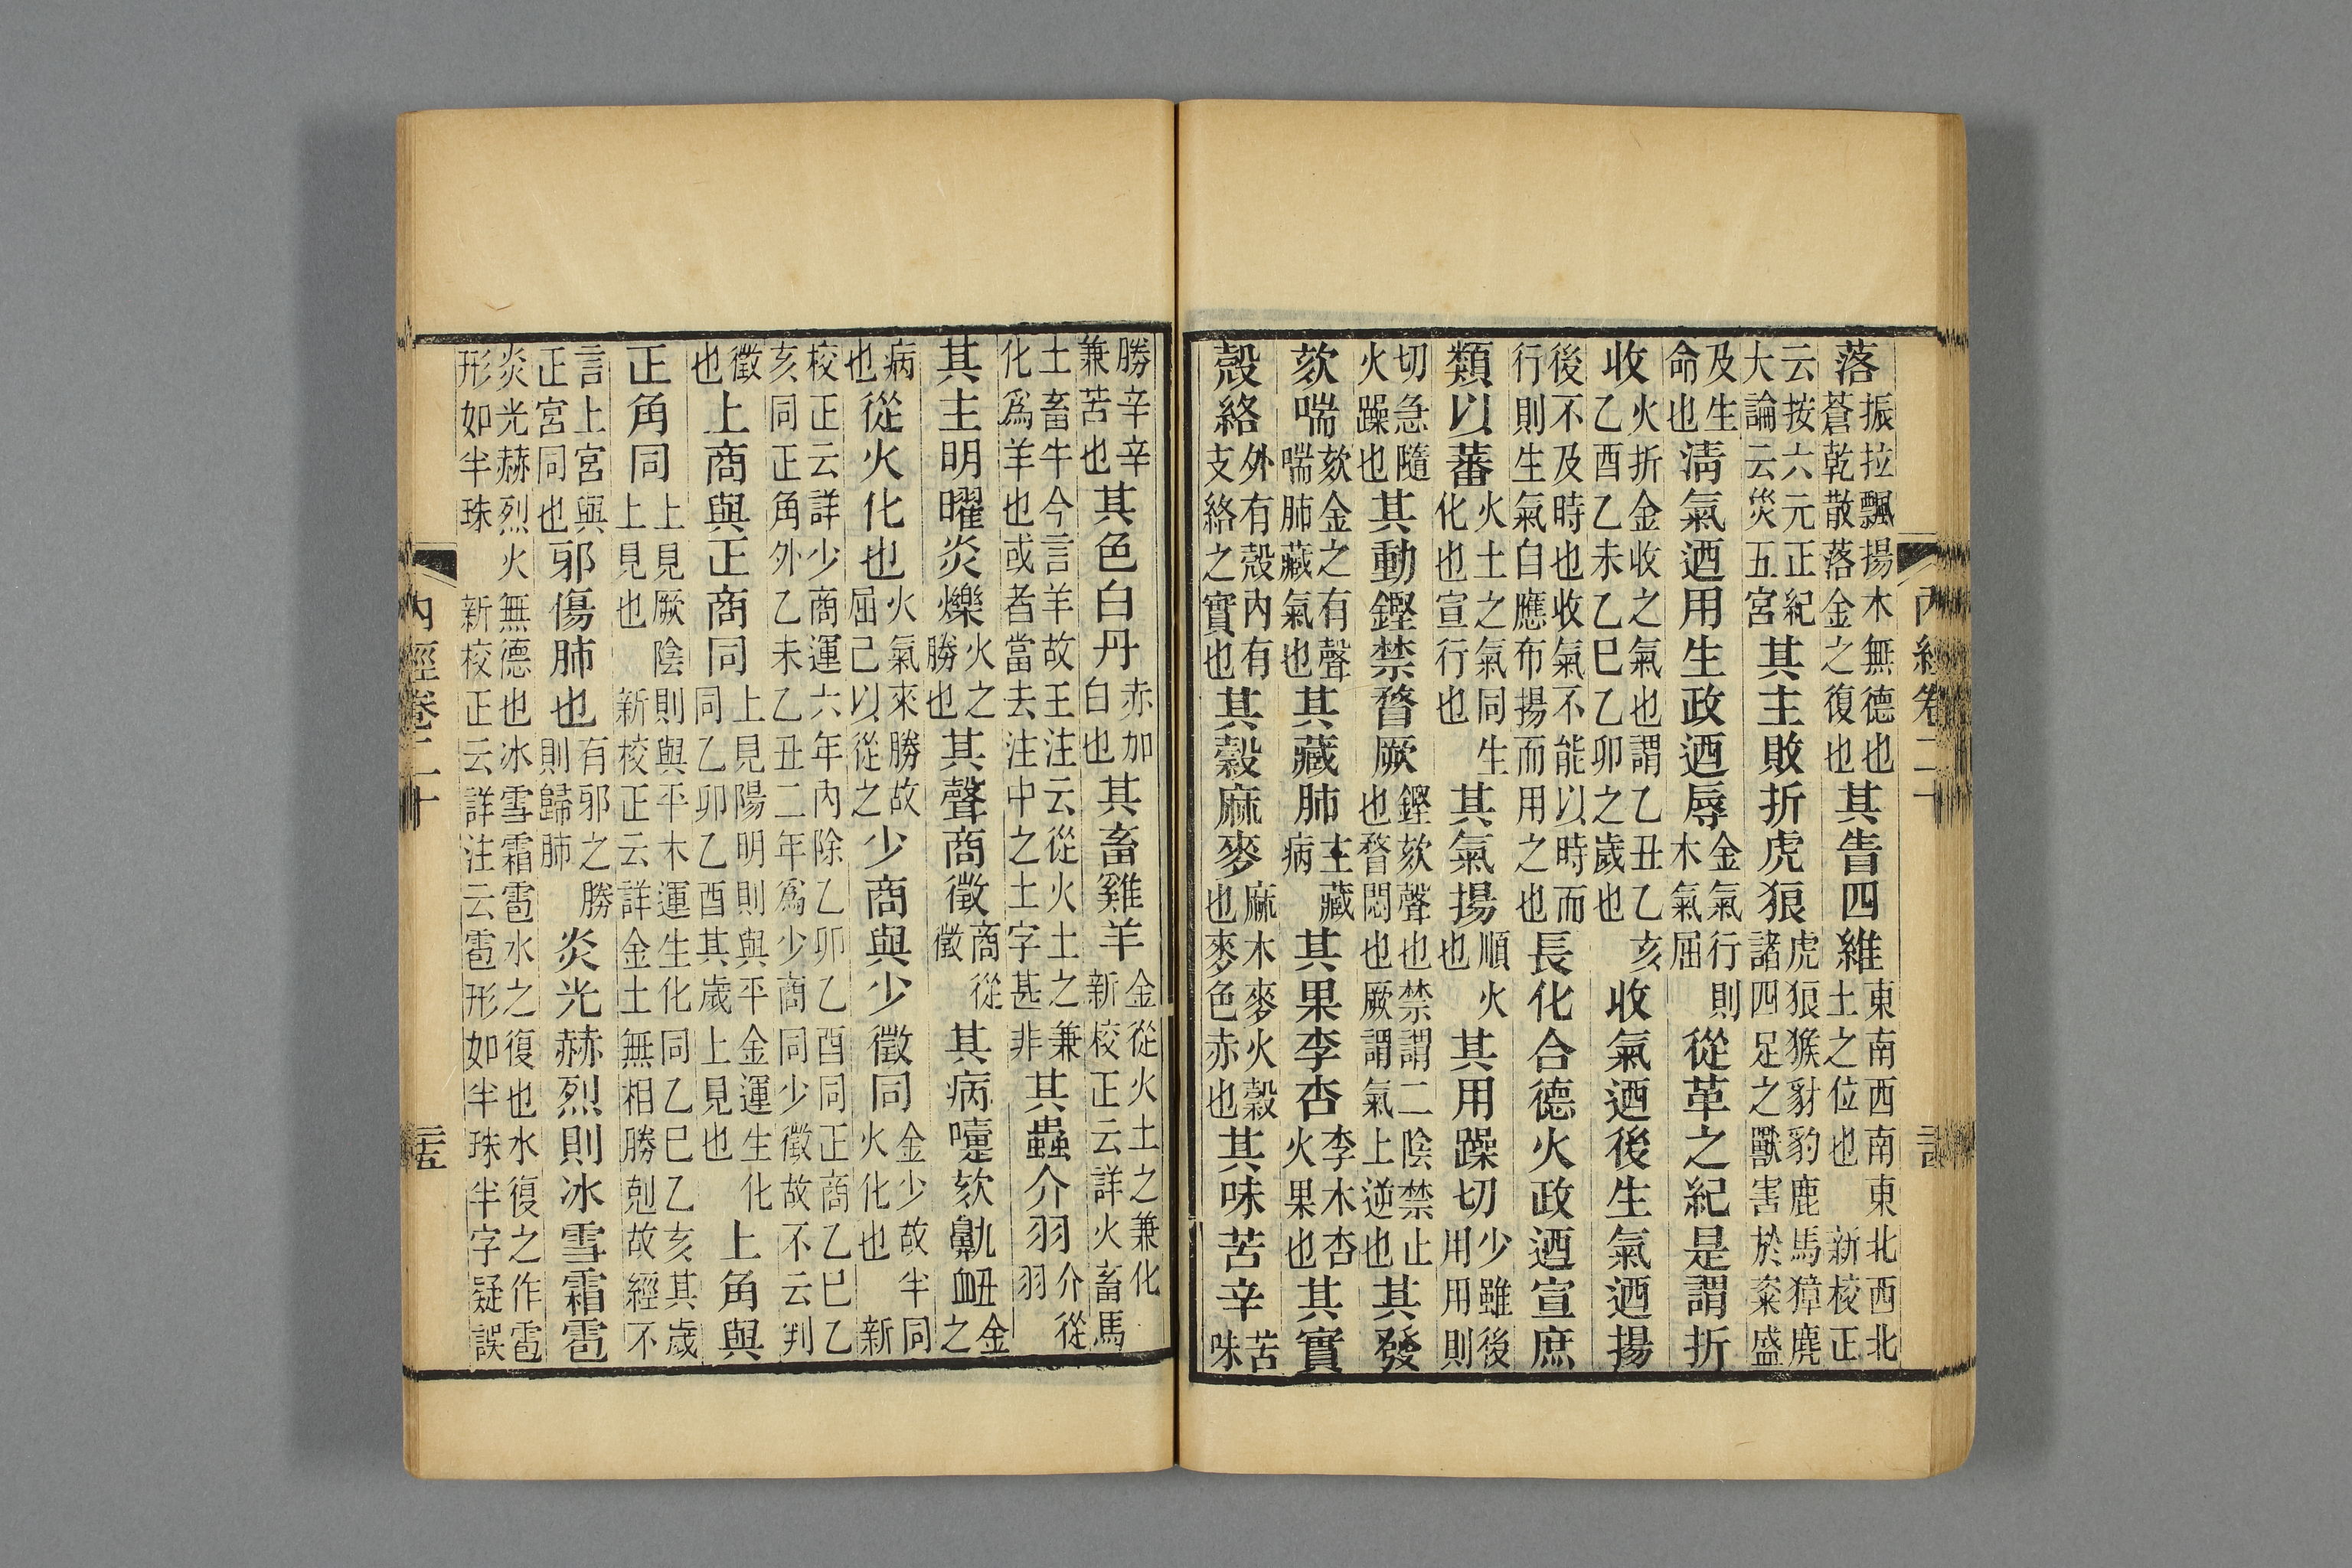 落振拉飄揚木無德也蒼乾散落金之復也其眚四維東南西南東北西北土之位也 新校正
云按六元正紀大論云災五宮其主敗折虎狼虎狼猴豺豹鹿馬獐麂諸四足之獸害於粢盛
及生命也清氣迺用生政迺辱金氣行則木氣屈從革之紀是謂折
收火折金收之氣也謂乙丑乙亥乙酉乙未乙巳乙卯之歲也收氣迺後生氣迺揚
後不及時也收氣不能以時而行則生氣自應布揚而用之也長化合德火政迺宣庶
類以蕃火土之氣同生化也宣行也其氣揚順火也其用躁切少雖後用用則
切急隨火躁也其動鏗禁瞀厥鏗欬聲也禁謂二陰禁止也瞀悶也厥謂氣上逆也其發
欬喘欬金之有聲喘肺藏氣也其藏肺主藏病其果李杏李木杏火果也其實
殼絡外有殼內有支絡之實也其穀麻麥麻木麥火穀也麥色赤也其味苦辛苦味
勝辛辛兼苦也其色白丹赤加白也其畜雞羊金從火土之兼化新校正云詳火畜馬
土畜牛今言羊故王注云從火土之兼化爲羊也或者當去注中之土字甚非其蟲介羽介從羽
其主明曜炎爍火之勝也其聲商徵商從徵其病嚏欬鼽衄金之
病也從火化也火氣來勝故屈己以從之少商與少徵同金少故半同火化也 新
校正云詳少商運六年內除乙卯乙酉同正商乙巳乙亥同正角外乙未乙丑二年爲少商同少徵故不云判
徵也上商與正商同上見陽明則與平金運生化同乙卯乙酉其歲上見也上角與
正角同上見厥陰則與平木運生化同乙巳乙亥其歲上見也 新校正云詳金土無相勝剋故經不
言上宮與正宮同也邪傷肺也有邪之勝則歸肺炎光赫烈則冰雪霜雹
炎光赫烈火無德也冰雪霜雹水之復也水復之作雹形如半珠 新校正云詳注云雹形如半珠半字疑誤
內經卷二十